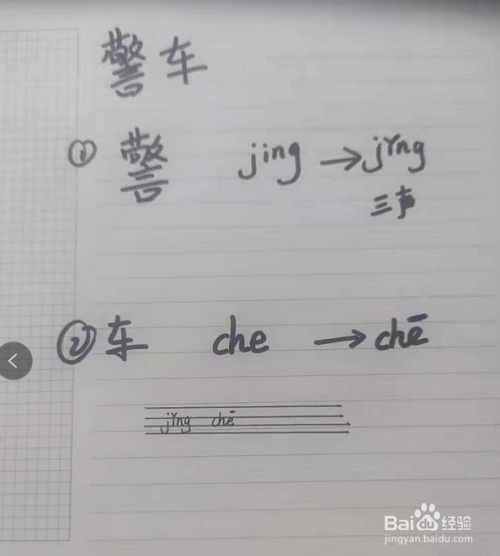 警车
① 警 jing → jǐng
三声
② 车 che → chē
jǐng chē
Baidu经验
jingyan.baidu.com